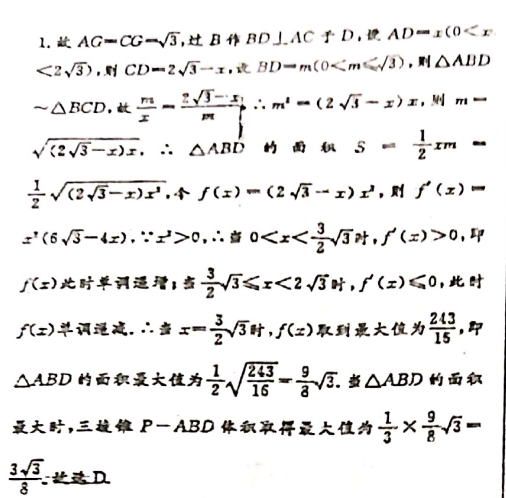 1. 故 AG=CG=√3,过 B 作 BD⊥AC 于 D,设 AD=x(0<x
<2√3),则 CD=2√3-x,设 BD=m(0<m≤√3),则△ABD
∽△BCD,故 m/x = (2√3-x)/m, ∴ m²=(2√3-x)x, 则 m=
√((2√3-x)x), ∴ △ABD 的面积 S = 1/2 xm =
1/2 √((2√3-x)x³),令 f(x)=(2√3-x)x³,则 f′(x)=
x²(6√3-4x),∵x²>0,∴当 0<x<3/2 √3时,f′(x)>0,即
f(x)此时单调递增;当 3/2 √3≤x<2√3时,f′(x)≤0,此时
f(x)单调递减.∴当 x=3/2 √3时,f(x)取到最大值为 243/16,即
△ABD 的面积最大值为 1/2 √(243/16)=9/8 √3. 当△ABD 的面积
最大时,三棱锥 P-ABD 体积取得最大值为 1/3×9/8 √3=
3√3/8.故选 D.